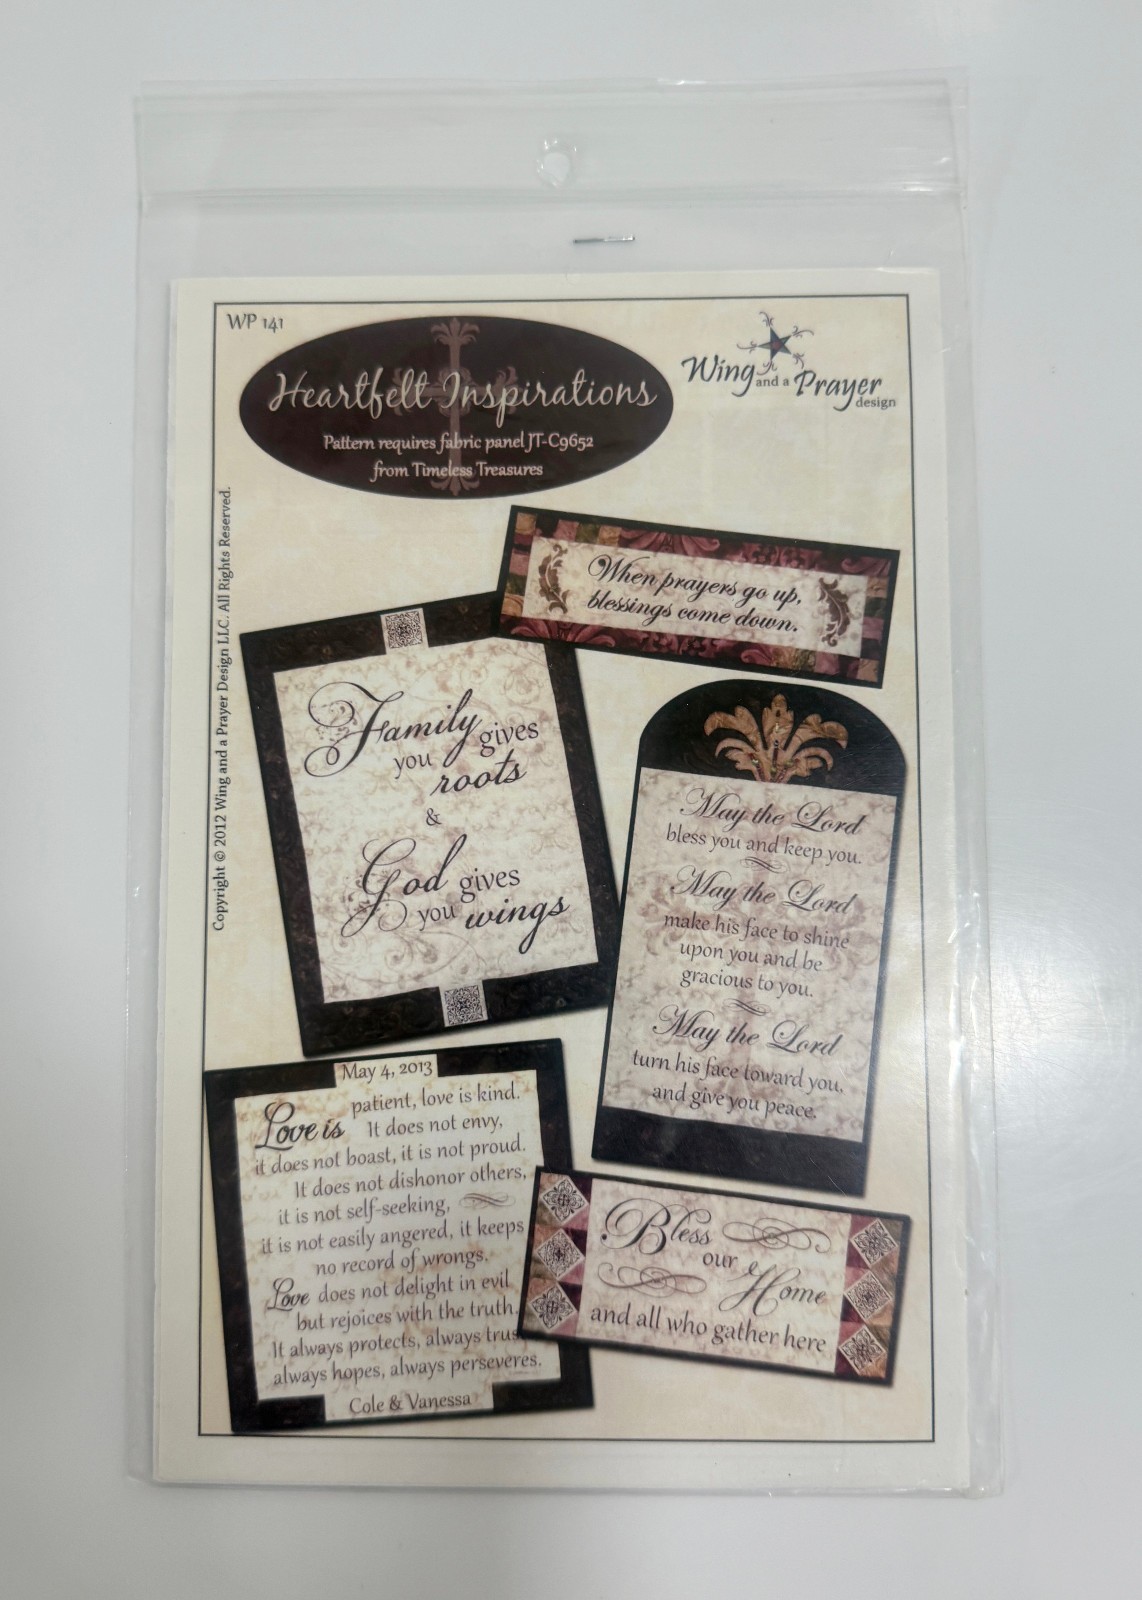 WP 141
Heartfelt Inspirations
Pattern requires fabric panel JT-C9652
from Timeless Treasures
Wing and a Prayer
design
Copyright © 2012 Wing and a Prayer Design LLC. All Rights Reserved.
When prayers go up,
blessings come down.
Family gives
you roots
&
God gives
you wings
May the Lord
bless you and keep you.
May the Lord
make his face to shine
upon you and be
gracious to you.
May the Lord
turn his face toward you,
and give you peace.
May 4, 2013
Love is patient, love is kind.
It does not envy,
it does not boast, it is not proud.
It does not dishonor others,
it is not self-seeking,
it is not easily angered, it keeps
no record of wrongs.
Love does not delight in evil
but rejoices with the truth.
It always protects, always trus
always hopes, always perseveres.
Cole & Vanessa
Bless
our
Home
and all who gather here